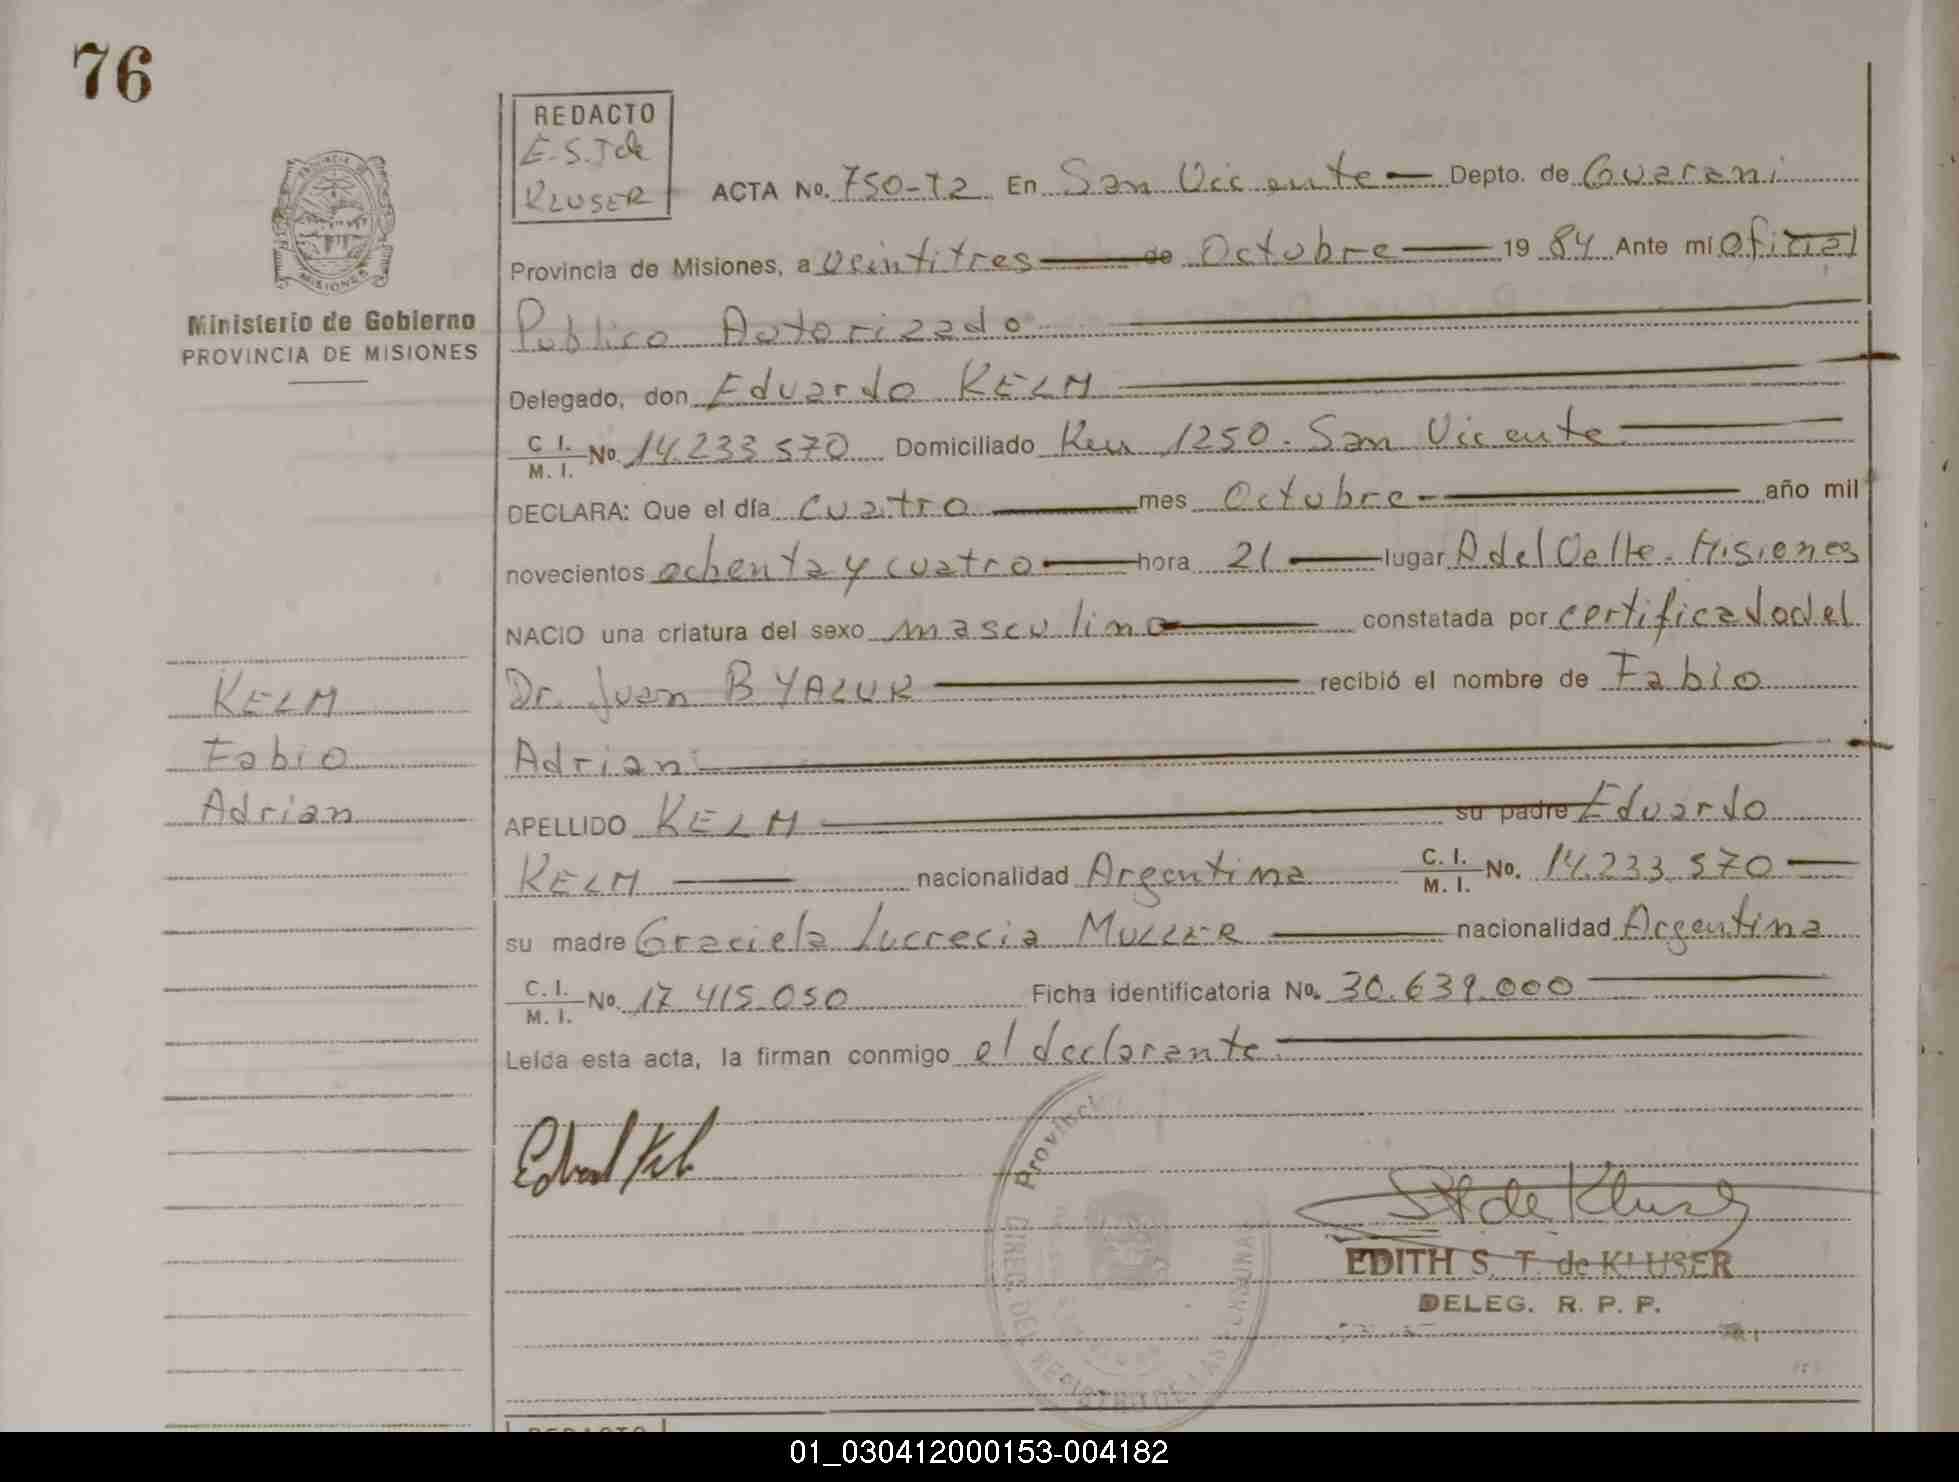 76
REDACTO
E.S.T de
KLUSER
ACTA No. 750-T2 En San Vicente Depto. de Guarani
Provincia de Misiones, a veintitres de Octubre 19 84 Ante mi Oficial
Ministerio de Gobierno
PROVINCIA DE MISIONES
Publico Autorizado
Delegado, don Eduardo KELM
C. I. M. I. No. 14.233.570 Domiciliado Km 1250. San Vicente
DECLARA: Que el día cuatro mes Octubre año mil
novecientos ochenta y cuatro hora 21 lugar A del Valle. Misiones
NACIO una criatura del sexo masculino constatada por certificado del
Dr. Juan BYALUK recibió el nombre de Fabio
Adrian
KELM
Fabio
Adrian
APELLIDO KELM su padre Eduardo
KELM nacionalidad Argentina C. I. M. I. No. 14.233.570
su madre Graciela Lucrecia MULLER nacionalidad Argentina
C. I. M. I. No. 17.415.050 Ficha identificatoria No. 30.639.000
Leída esta acta, la firman conmigo el declarante
Provinci
DIREC. DEL REGISTRO DE LAS PERSONAS
ST de Kluser
EDITH S. T. de KLUSER
DELEG. R. P. P.
REDACTO
01_030412000153-004182